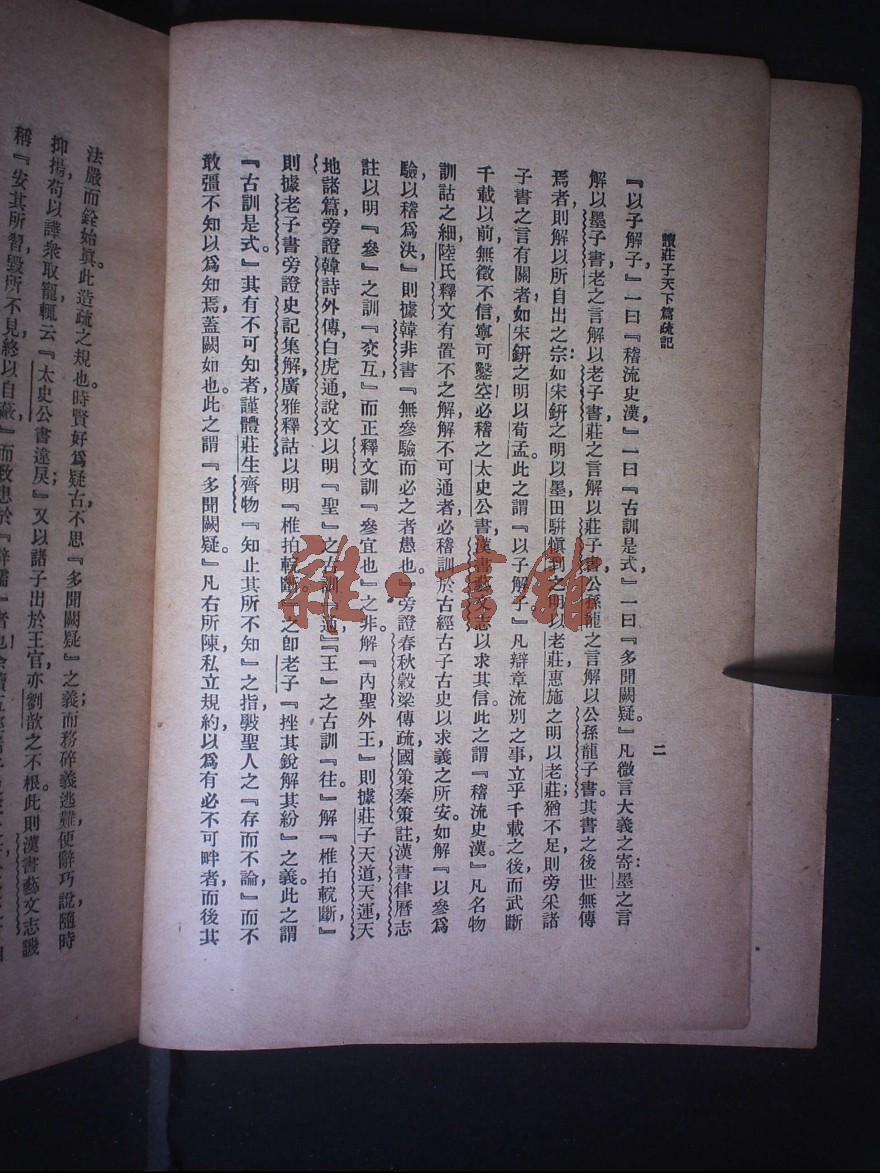 讀莊子天下篇疏記
二
『以子解子』一曰『稽流史漢』一曰『古訓是式』一曰『多聞闕疑』凡微言大義之寄：墨之言
解以墨子書，老之言解以老子書，莊之言解以莊子書，公孫龍之言解以公孫龍子書。其書之後世無傳
焉者，則解以所自出之宗：如宋鈃之明以墨，田駢愼到之明以老莊，惠施之明以老莊；猶不足，則旁采諸
子書之言有關者，如宋鈃之明以荀孟。此之謂『以子解子』凡辯章流別之事，立乎千載之後，而武斷
千載以前，無徵不信，寧可鑿空！必稽之太史公書，漢書藝文志以求其信。此之謂『稽流史漢』凡名物
訓詁之細，陸氏釋文有置不之解，解不可通者，必稽訓於古經古子古史以求義之所安。如解『以參爲
驗，以稽爲決，』則據韓非書『無參驗而必之者愚也。』旁證春秋穀梁傳疏，國策秦策註，漢書律曆志
註以明『參』之訓『交互，』而正釋文訓『參宜也』之非。解『內聖外王』則據莊子天道天運天
地諸篇，旁證韓詩外傳，白虎通，說文以明『聖』之古訓『通，』『王』之古訓『往。』解『椎拍輐斷，』
則據老子書，旁證史記集解，廣雅釋詁以明『椎拍輐斷』之卽老子『挫其銳解其紛』之義，此之謂
『古訓是式。』其有不可知者，謹體莊生齊物『知止其所不知』之指，斅聖人之『存而不論，』而不
敢彊不知以爲知焉，蓋闕如也。此之謂『多聞闕疑。』凡右所陳，私立規約，以爲有必不可畔者，而後其
法嚴而銓始眞。此造疏之規也。時賢好爲疑古，不思『多聞闕疑』之義，而務碎義逃難，便辭巧說，隨時
抑揚，苟以譁衆取寵，輒云『太史公書違戾；』又以諸子出於王官，亦劉歆之不根。此則漢書藝文志譏
稱『安其所習，毀所不見，終以自蔽，』而致患於『辟儒』者也！
雜·書館